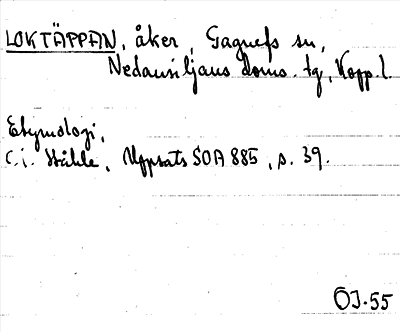 LOKTÄPPAN, åker, Gagnefs sn,
Nedansiljans doms. tg, Kopp. l.
Etymologi,
C.i. Ståhle, Uppsats SOA 885, s. 39.
ÖJ-55